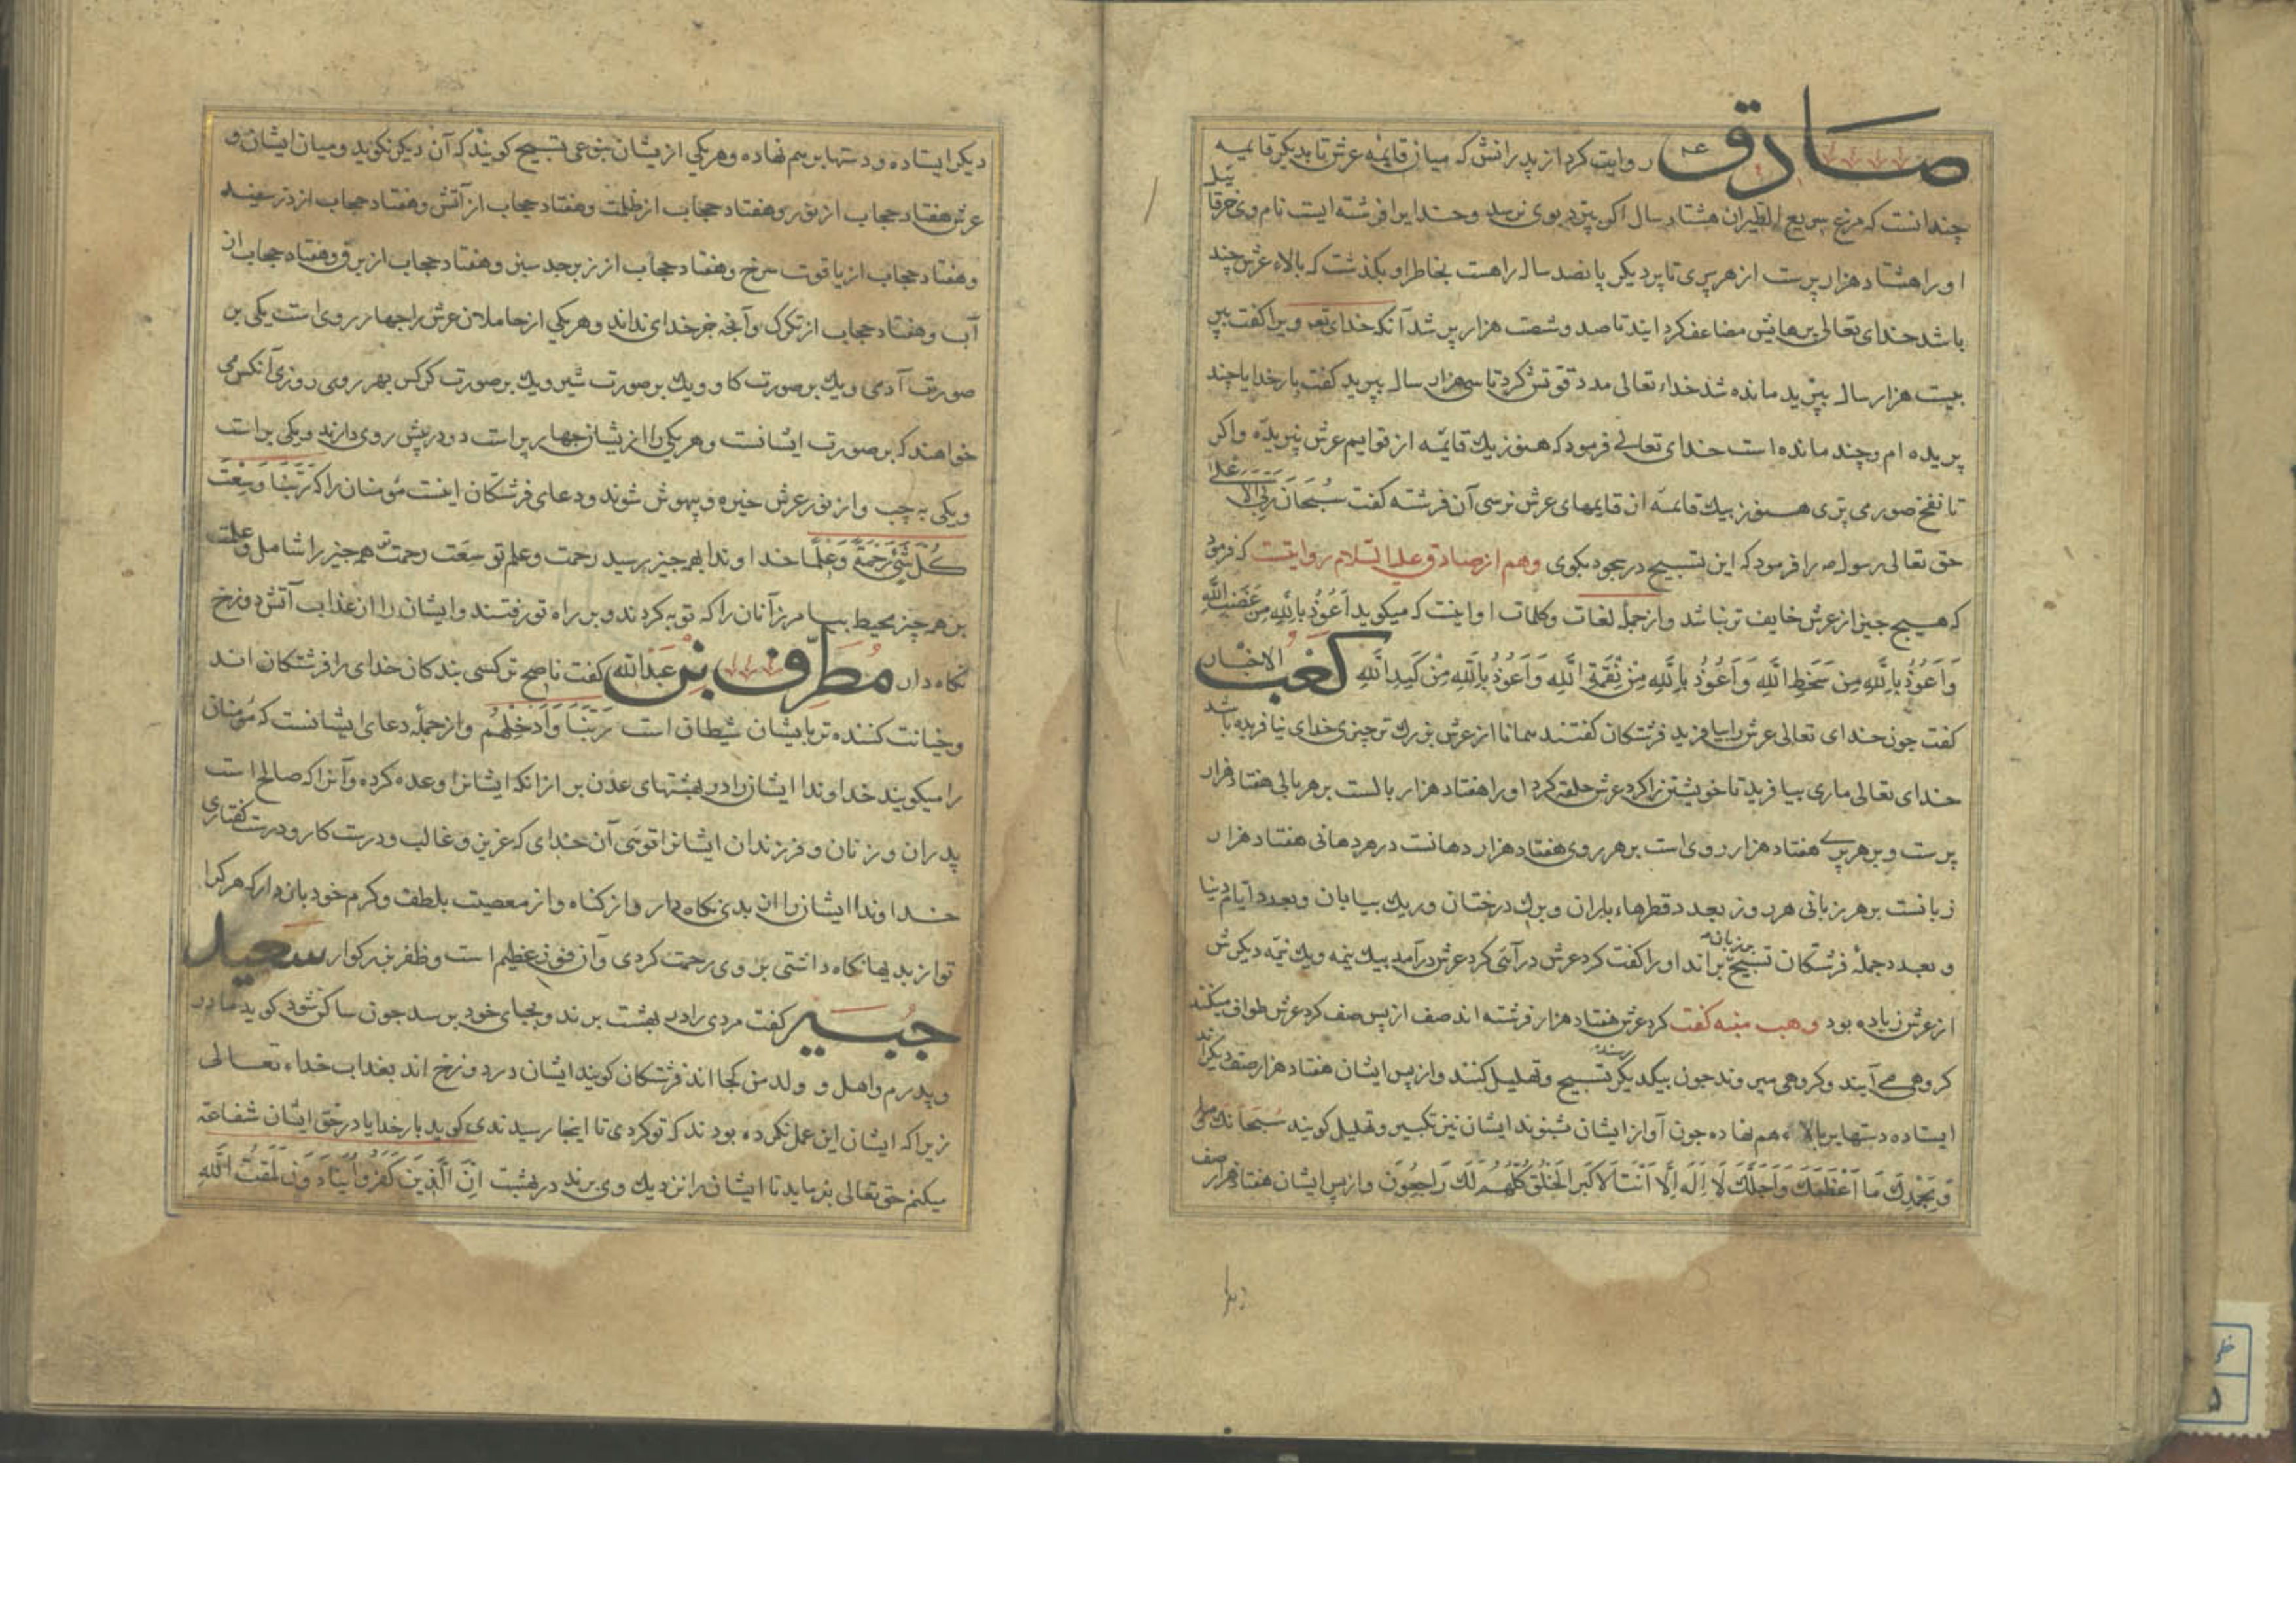 صادق ع م روایت کرد از پدرانش که میان قایمه عرش تا بدیکر قایمه
چندانست که مرغ سریع الطیران هشتاد سال اکر بپرد بوی نرسد و خدایرا فرشته ایست نام وی خرقائیل
او را هشتاد هزار پرست از هر پری تا پر دیکر پانصد ساله راهست بخاطر او بکذشت که بالاء عرش چند
باشد خدای تعالی پرهایش مضاعف کردانید تا صد و شصت هزار پر شد آنکه خدای تعه ویرا کفت بپر
بیست هزار ساله بپرید مانده شد خداء تعالی مدد قوتش کرد تا سی هزار ساله بپرید کفت بار خدایا چند
پریده ام و چند مانده است خدای تعالی فرمود که هنوز یك قایمه از قوایم عرش نپریده و اکر
تا نفخ صور می پری هنوز بیك قائمه از قایمهای عرش نرسی آن فرشته کفت سبحان ربی الاعلی
حق تعالی رسول ص را فرمود که این تسبیح در سجود بکوی و هم از صادق علیه السلام روایتست که فرمود
که هیچ چیز از عرش خایف تر نباشد و از جملهٔ لغات و کلمات او اینست که میکوید اَعُوذُ بِاللهِ مِن غَضَبِ اللهِ
وَاَعُوذُ بِاللهِ مِن سَخَطِ اللهِ وَاَعُوذُ بِاللهِ مِن نِقمَةِ اللهِ وَاَعُوذُ بِاللهِ مِن کَیدِ اللهِ کعب الاخبار
کفت چون خدای تعالی عرش را بیافرید فرشتکان کفتند همانا از عرش بزرك تر چیزی خدای نیافریده باشد
خدای تعالی ماری بیافرید تا خویشتن را کرد عرش حلقه کرد او را هفتاد هزار بالست بر هر بالی هفتاد هزار
پرست و بر هر پری هفتاد هزار روی است بر هر روی هفتاد هزار دهانست در هر دهانی هفتاد هزار
زبانست بر هر زبانی هر روز بعدد قطرهاء باران و برك درختان و ریك بیابان و بعدد ایام دنیا
و بعدد جملهٔ فرشتکان تسبیح بر زبانش براند او را کفت کرد عرش در آی کرد عرش در آمد بیك نیمه و یك نیمه دیکرش
از عرش زیاده بود وهب منبه کفت کرد عرش هفتاد هزار فرشته اند صف از پس صف کرد عرش طواف میکنند
کروهی می آیند و کروهی میروند چون بیکدیکر رسند تسبیح و تهلیل کنند و از پس ایشان هفتاد هزار صف دیکراند
ایستاده دستها بر بالاء هم نهاده چون آواز ایشان شنوند ایشان نیز تکبیر و تهلیل کویند سُبحانَك
وَبِحَمدِكَ مَا اَعظَمَكَ وَاَجَلَّكَ لَا اِلٰهَ اِلَّا اَنتَ الاَکبَر الخَلقُ کُلُّهُم لَكَ رَاجِعُونَ و از پس ایشان هفتاد هزار صف
دیکر ایستاده و دستها بر هم نهاده و هر یکی از یشان بنوعی تسبیح کویند که آن دیکر نکوید و میان ایشان و
عرش هفتاد حجاب از نور و هفتاد حجاب از ظلمت و هفتاد حجاب از آتش و هفتاد حجاب از در سفید
و هفتاد حجاب از یاقوت سرخ و هفتاد حجاب از زبرجد سبز و هفتاد حجاب از برق و هفتاد حجاب از
آب و هفتاد حجاب از تکرك و آنچه جز خدای نداند و هر یکی از حاملان عرش را چهار روی است یکی بر
صورت آدمی و یك بر صورت کاو و یك بر صورت شیر و یك بر صورت کرکس بهر روی روزی آنکس می
خواهند که بر صورت ایشانست و هر یکی را از یشان چهار پر است دو در پیش روی دارند و یکی بر است
و یکی به چپ و از نور عرش خیره و بیهوش شوند و دعای فرشتکان اینست مؤمنان را که رَبَّنَا وَسِعتَ
کُلَّ شَیءٍ رَحمَةً وَعِلمًا خداوندا بهر چیز برسید رحمت و علم تو سعت رحمتش همه چیز را شامل و علمت
بر همه چیز محیط بیامرز آنان را که توبه کردند و بر راه تو رفتند و ایشان را از عذاب آتش دوزخ
نکاه دار مطرف بن عبدالله کفت ناصح تر کسی بندکان خدای را فرشتکان اند
و خیانت کننده تر با یشان شیطان است رَبَّنَا وَاَدخِلهُم و از جملهٔ دعای ایشانست که مؤمنان
را میکویند خداوندا ایشان را در بهشتهای عدن بر از انکه ایشانرا وعده کرده و آنرا که صالح است
پدران و زنان و فرزندان ایشانرا توئی آن خدای که عزیز و غالب و درست کار و درست کفتاری
خداوندا ایشان را از بدی نکاه دار و از کناه و از معصیت بلطف و کرم خود باز دار که هر کرا
تو از بدیها نکاه داشتی بر وی رحمت کردی و آن فوز عظیم است و ظفر بزرکوار سعید
جبیر کفت مردی را در بهشت برند و بجای خود برسد چون ساکن شود کوید مادر
و پدرم و اهل و ولد من کجا اند فرشتکان کویند ایشان در دوزخ اند بعذاب خداء تعالی
زیرا که ایشان این عمل نکرده بودند که تو کردی تا اینجا رسیدندی کوید بار خدایا در حق ایشان شفاعة
میکنم حق تعالی بفرماید تا ایشان را نزدیك وی برند در بهشت اِنَّ الَّذِینَ کَفَرُوا یُنَادَونَ لَمَقتُ اللهِ